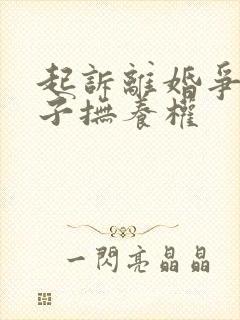 起訴離婚爭
子撫養權
一閃亮晶晶